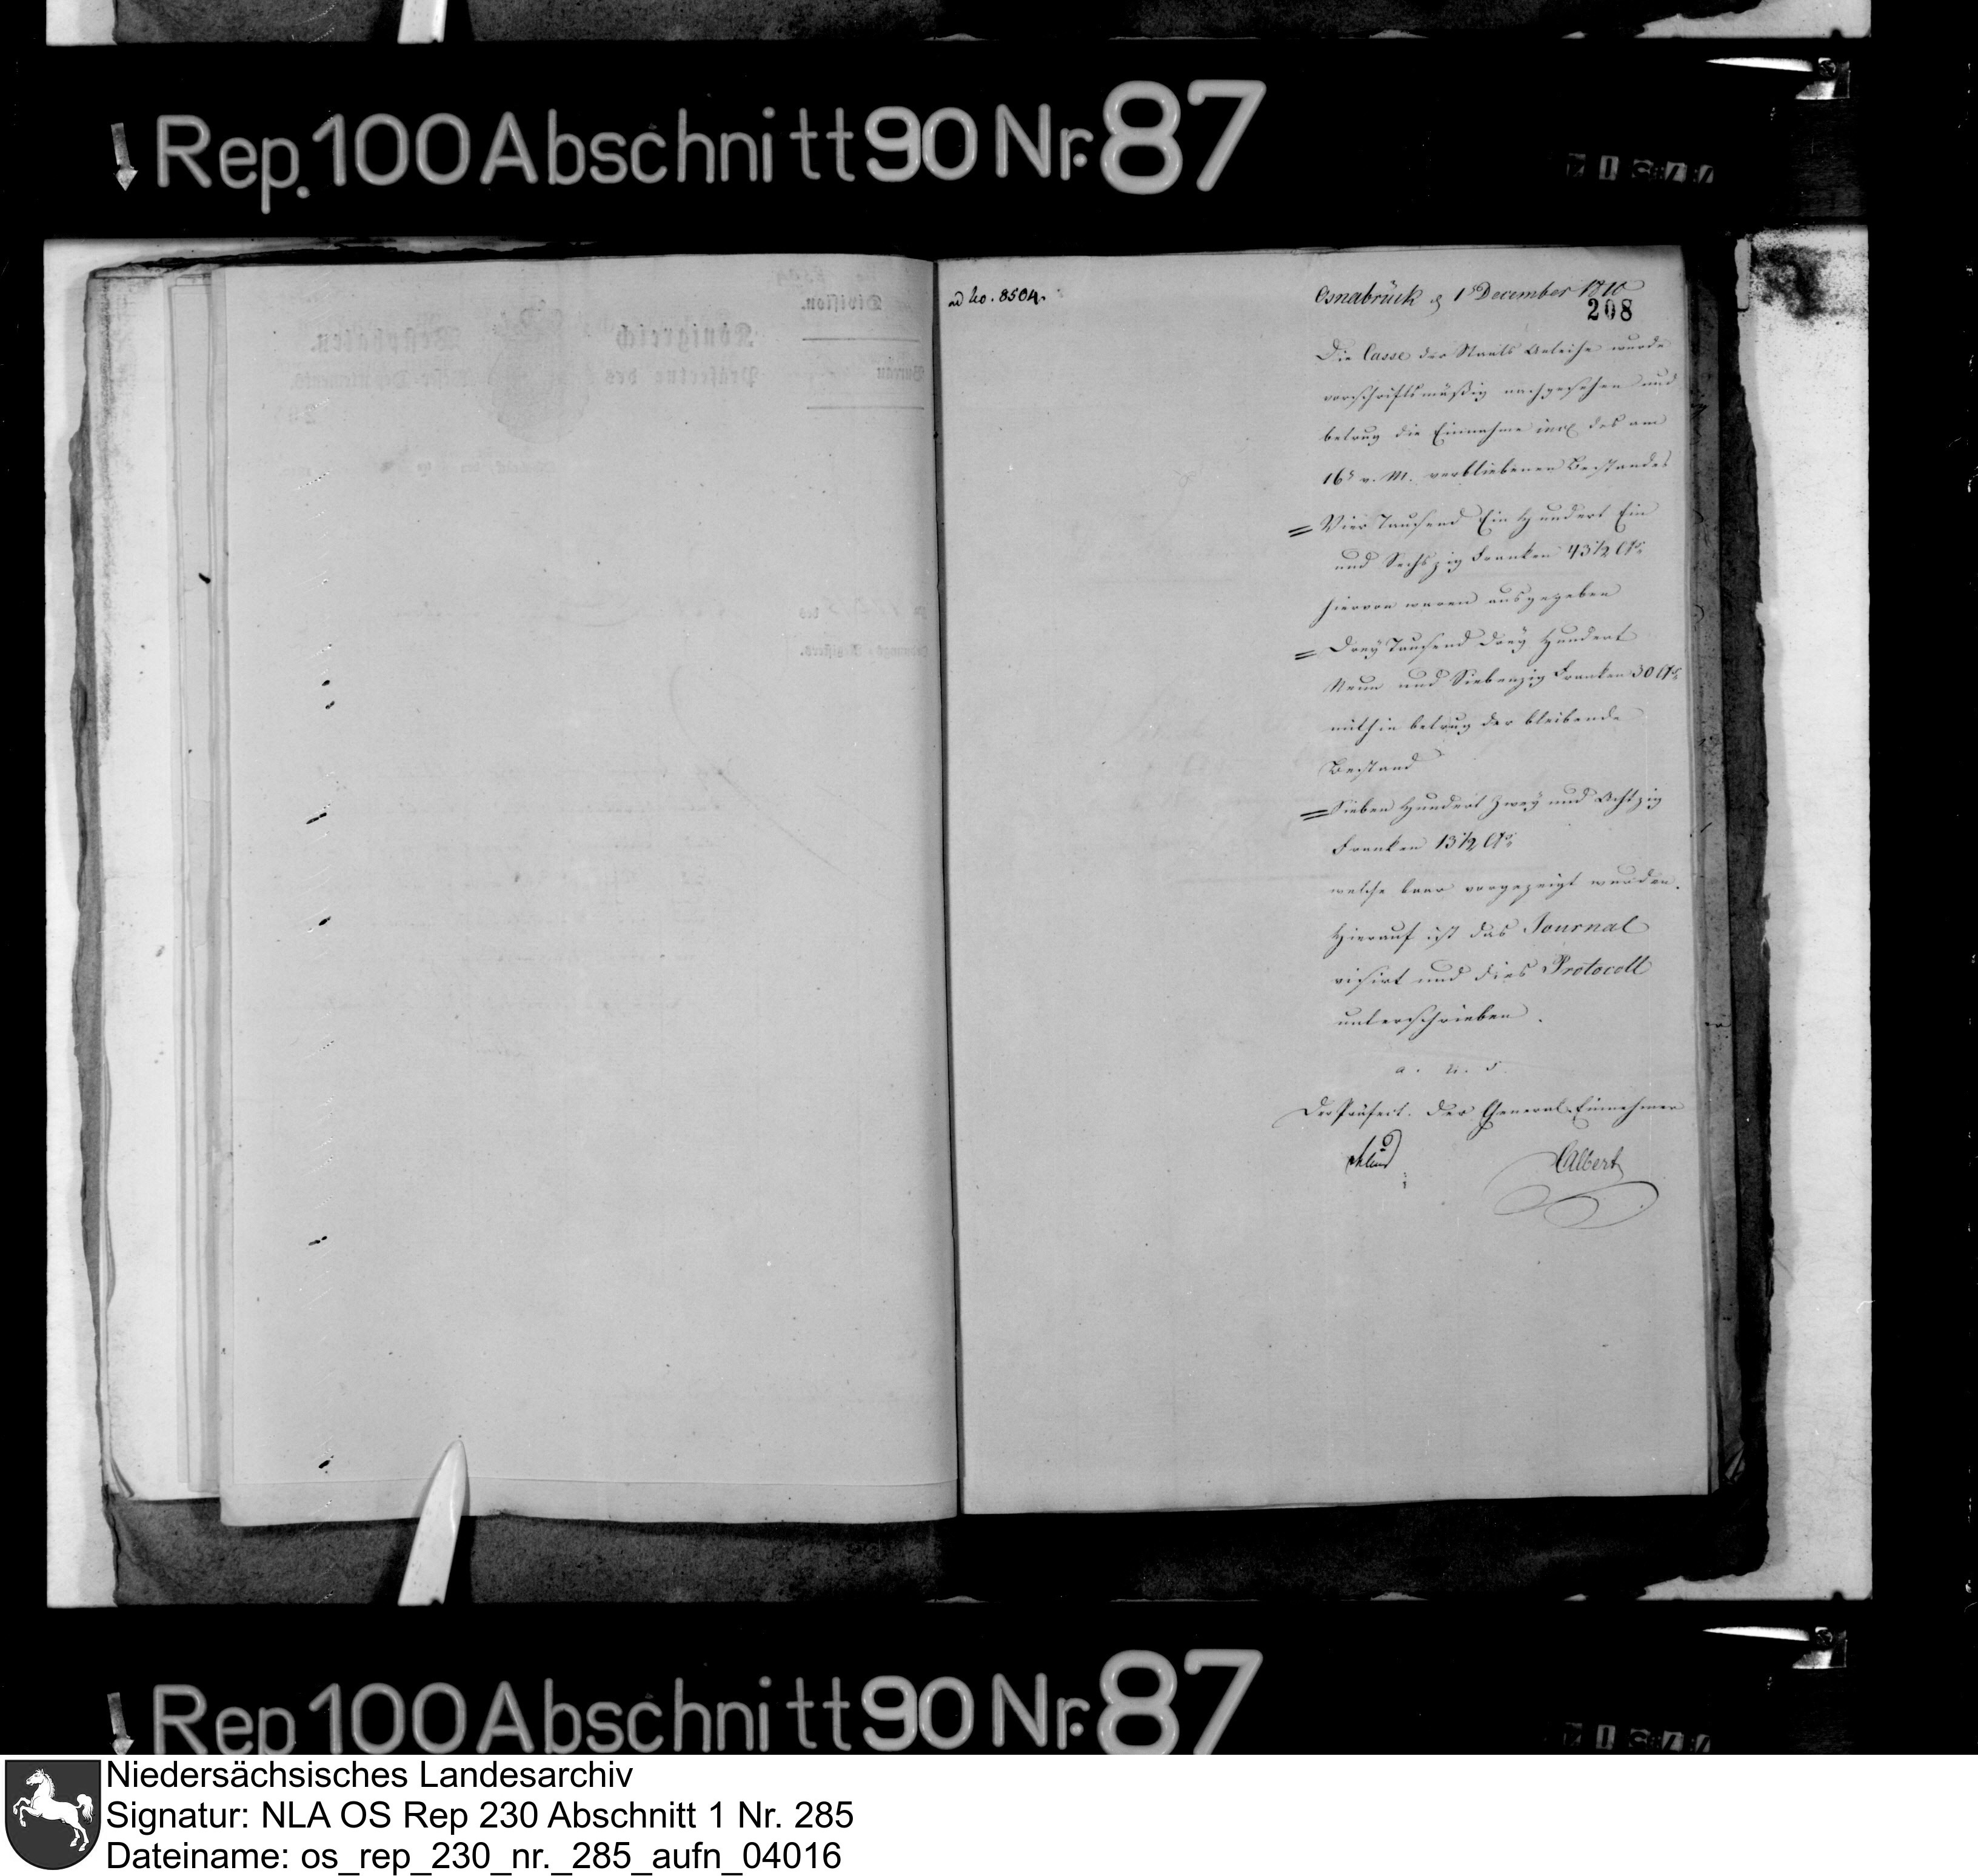 Rep. 100 Abschnitt 90 Nr. 87
ad No. 8504.
Osnabrück d 1s December 1810
208
Die Casse der Staats Anleihe wurde
vorschriftsmäßig nachgesehen und
betrug die Einnahme incl des am
16s v. M. verbliebenen Bestandes
= Vier Tausend Ein Hundert Ein
und Sechszig Franken 43 1/2 Cts
hiervon waren ausgegeben
= Drey Tausend Drey Hundert
Neun und Siebenzig Franken 30 Cts
mithin betrug der bleibende
Bestand
= Sieben Hundert Zwey und Achtzig
Franken 13 1/2 Cts
welche baar vorgezeigt wurden.
Hierauf ist das Journal
visirt und dies Protocoll
unterschrieben.
a. u. s.
Der Präfect. Der General-Einnehmer
Albert
Division.
Königreich Westphalen.
Bureau
Präfectur des Weser-Departements.
Rep 100 Abschnitt 90 Nr. 87
Niedersächsisches Landesarchiv
Signatur: NLA OS Rep 230 Abschnitt 1 Nr. 285
Dateiname: os_rep_230_nr._285_aufn_04016